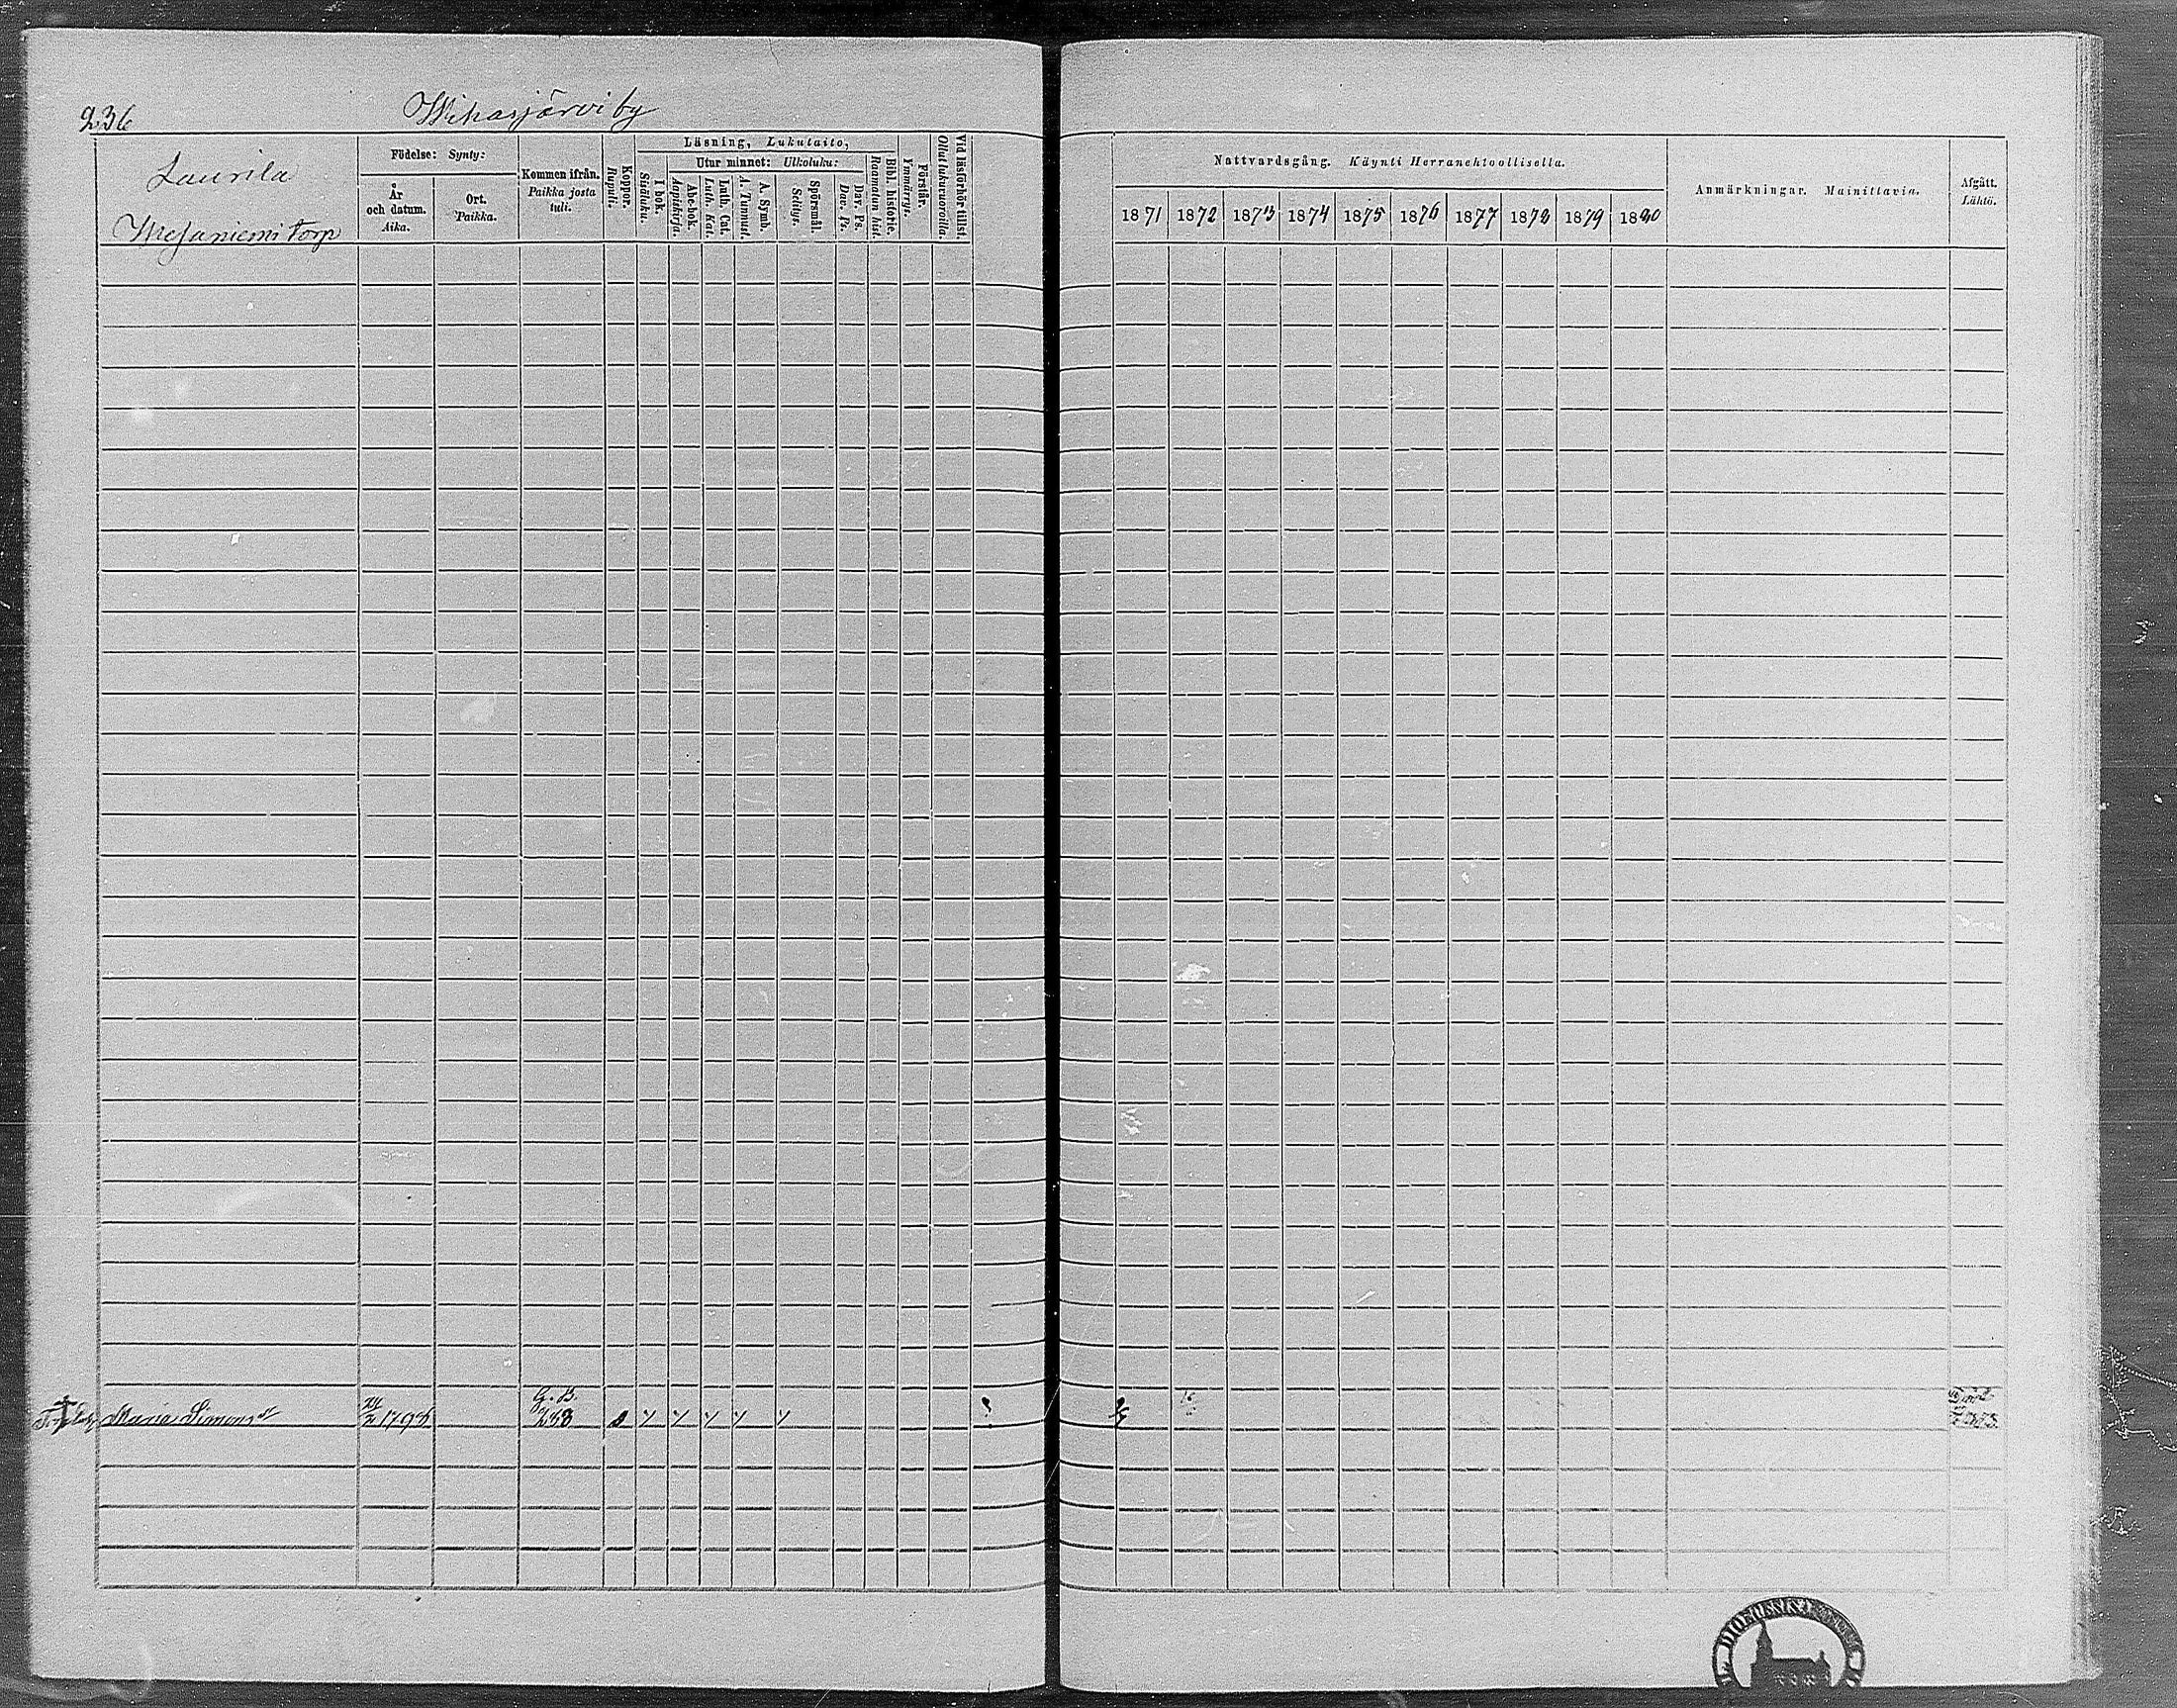 236
Wihasjärvi by
Laurila
Mesaniemi torp
Födelse: Synty:
År och datum. Aika.
Ort. Paikka.
Kommen ifrån. Paikka josta tuli.
Koppor. Rupuli.
Läsning, Lukutaito,
I bok. Sisäluku.
Utur minnet: Ulkoluku:
Abc-bok. Aapiskirja.
Luth. Cat. Luth. Kat.
A. Symb. A. Tunnust.
Spörsmål. Selitys.
Dav. Ps. Dav. Ps.
Bibl. historie. Raamatun hist.
Förstår. Ymmärrys.
Vid läsförhör tillst. Ollut lukuvuoroilla.
Nattvardsgång. Käynti Herranehtoollisella.
1871 1872 1873 1874 1875 1876 1877 1878 1879 1880
Anmärkningar. Mainittavia.
Afgått. Lähtö.
G. B.
Maria Simonsdr 24/2 1798 288